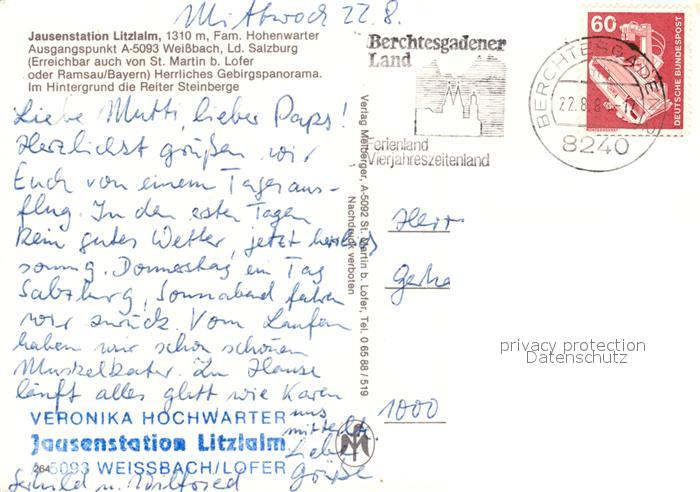 Mittwoch 22.8.
Jausenstation Litzlalm, 1310 m, Fam. Hohenwarter
Ausgangspunkt A-5093 Weißbach, Ld. Salzburg
(Erreichbar auch von St. Martin b. Lofer
oder Ramsau/Bayern) Herrliches Gebirgspanorama.
Im Hintergrund die Reiter Steinberge
Liebe Mutti, lieber Paps!
Herzlichst grüßen wir
Euch von einem Tagesaus-
flug. In den ersten Tagen
kein gutes Wetter, jetzt herrlich
sonnig. Donnerstag ein Tag
Salzburg, Sonnabend fahren
wir zurück. Vom Laufen
haben wir schon schönen
Muskelkater. Zu Hause
läuft alles glatt wie Karen
uns
mitteilt.
Liebe
Grüße
Gerhild u. Wilfried
VERONIKA HOCHWARTER
Jausenstation Litzlalm
264
5093 WEISSBACH/LOFER
Verlag Metberger, A-5092 St. Martin b. Lofer, Tel. 0 65 88 / 519
Nachdruck verboten
Berchtesgadener
Land
Ferienland
Vierjahreszeitenland
BERCHTESGADEN
22.8.8
8240
60
DEUTSCHE BUNDESPOST
Herr
Gerha
1000
privacy protection
Datenschutz